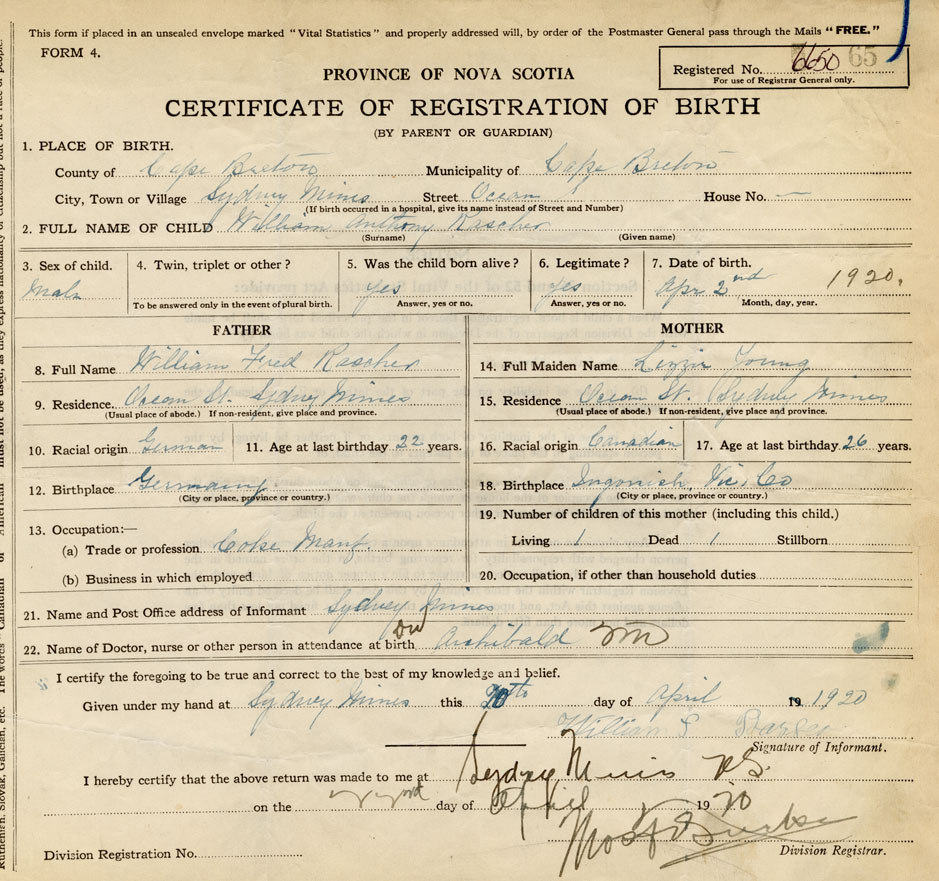 This form if placed in an unsealed envelope marked "Vital Statistics" and properly addressed will, by order of the Postmaster General pass through the Mails "FREE."
FORM 4.
Registered No. 6650 65
For use of Registrar General only.
PROVINCE OF NOVA SCOTIA
CERTIFICATE OF REGISTRATION OF BIRTH
(BY PARENT OR GUARDIAN)
1. PLACE OF BIRTH.
County of Cape Breton Municipality of Cape Breton
City, Town or Village Sydney Mines Street Ocean House No. —
(If birth occurred in a hospital, give its name instead of Street and Number)
2. FULL NAME OF CHILD William Anthony Rascher
(Surname) (Given name)
3. Sex of child. Male
4. Twin, triplet or other?
To be answered only in the event of plural birth.
5. Was the child born alive? yes
Answer, yes or no.
6. Legitimate? yes
Answer, yes or no.
7. Date of birth. Apr 2nd 1920.
Month, day, year.
FATHER
8. Full Name William Fred Rascher
9. Residence. Ocean St. Sydney Mines
(Usual place of abode.) If non-resident, give place and province.
10. Racial origin German 11. Age at last birthday 22 years.
12. Birthplace Germany
(City or place, province or country.)
13. Occupation:—
(a) Trade or profession Coke Manf.
(b) Business in which employed
MOTHER
14. Full Maiden Name Lizzie Young
15. Residence Ocean St. Sydney Mines
(Usual place of abode.) If non-resident, give place and province.
16. Racial origin Canadian 17. Age at last birthday 26 years.
18. Birthplace Ingonish, Vic. Co
(City or place, province or country.)
19. Number of children of this mother (including this child.)
Living 1 Dead 1 Stillborn
20. Occupation, if other than household duties
21. Name and Post Office address of Informant Sydney Mines
22. Name of Doctor, nurse or other person in attendance at birth Dr Archibald
I certify the foregoing to be true and correct to the best of my knowledge and belief.
Given under my hand at Sydney Mines this day of April 19 1920
William
Signature of Informant.
I hereby certify that the above return was made to me at Sydney Mines N.S.
on the day of April 1920
Division Registration No. Division Registrar.